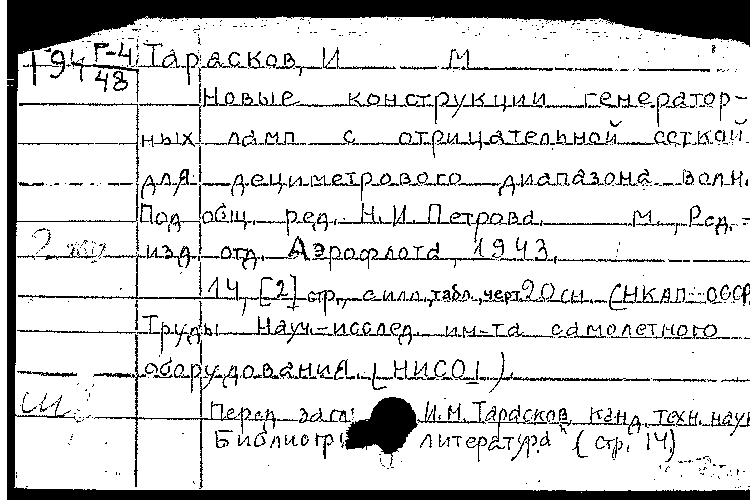 194 Г-4/48 Тарасков, И М
Новые конструкции генератор-
ных ламп с отрицательной сеткой
для дециметрового диапазона волн.
Под общ. ред. Н.И. Петрова. М., Ред.-
2 изд. отд. Аэрофлота, 1943.
14, [2] стр., с илл., табл., черт. 20 см. (НКАП-СССР.
Труды Науч.-исслед. ин-та самолетного
оборудования (НИСО).
Перед загл. И.М. Тарасков, канд. техн. наук
Библиогр. литература (стр. 14)